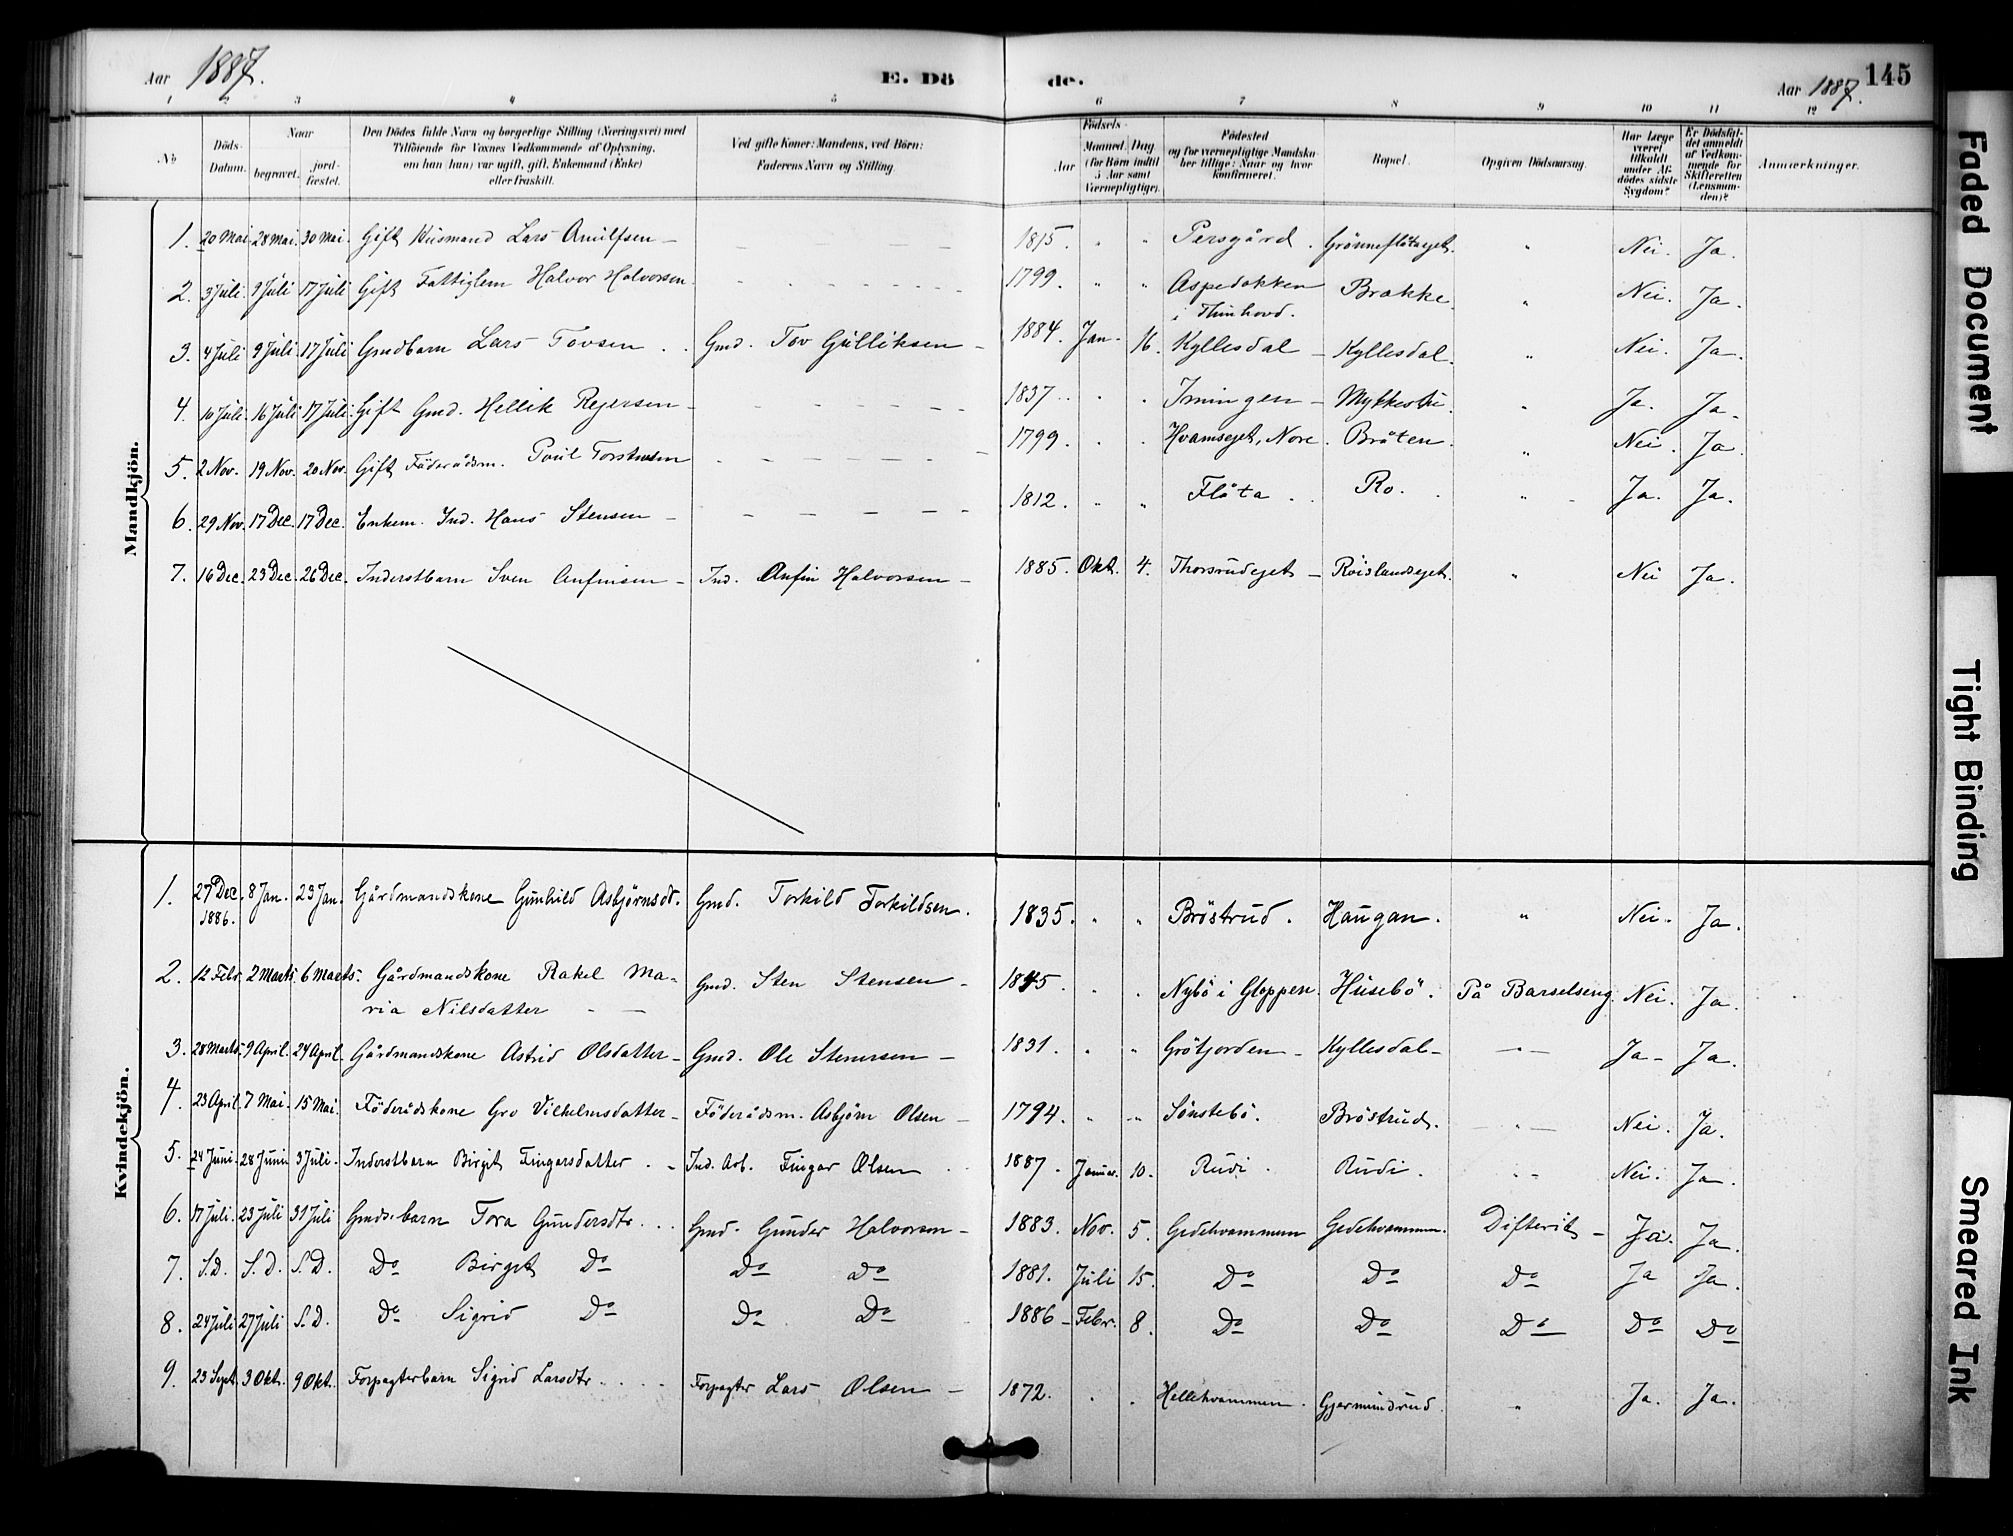 Aar 1887. E. Dö
de. Aar 1887. 145
1 2 3 4 5 6 7 8 9 10 11 12
No
Döds-
Datum.
Naar
begravet.
jord-
fæstet.
Den Dödes fulde Navn og borgerlige Stilling (Næringsvei) med
Tilföiende for Voxnes Vedkommende af Oplysning,
om han (hun) var ugift, gift, Enkemand (Enke)
eller fraskilt.
Ved gifte Koner: Mandens, ved Börn:
Faderens Navn og Stilling.
Födsels-
Aar
Maaned. Dag
(for Börn indtil
5 Aar samt
Værnepligtige).
Födested
og for værnepligtige Mandskaber tillige: Naar og hvor
konfirmeret.
Bopæl.
Opgiven Dödsaarsag.
Har Læge
været
tilkaldt
under Af-
dödes sidste
Sygdom?
Er Dödsfal-
det anmeldt
af Vedkom-
mende for
Skifteretten
(Lensman-
den)?
Anmærkninger.
Mandkjön.
1. 20 Mai 28 Mai. 30 Mai. Gift Husmand Lars Arnulfsen – – – – 1815. " " Persgård. Grönneflötaeget. " Nei. Ja.
2. 3 Juli. 9 Juli 17 Juli Gift Fattiglem Halvor Halvorsen - - - - 1799. " " Aspedokken i Thinhovd. Brække " Nei. Ja.
3. 4 Juli 9 Juli. 17 Juli Gmdbarn Lars Tovsen . . Gmd. Tov Gulliksen – 1884. Jan. 16. Kyllesdal – Kyllesdal. " Nei. Ja.
4. 10 Juli. 16 Juli 17 Juli. Gift Gmd. Hellik Rejersen – – – – 1837. . . Imingen – Mykkestu. " Ja. Ja.
5. 2 Nov. 19 Nov. 20 Nov. Gift Föderådsm. Poul Torstensen – – – – 1799. . . Hvamseget, Nore. Bråten. " Nei. Ja.
6. 29 Nov. 17 Dec. 17 Dec. Enkem. Ind. Hans Stensen – – – – 1812. " " Flåta . . Ro. . " - Ja. Ja.
7. 16 Dec. 23 Dec. 26 Dec. Inderstbarn Sven Anfinsen – Ind. Anfin Halvorsen – 1885. Okt. 4. Thorsrudeget – Roislandseget. " Nei Ja.
Kvindekjön.
1. 27 Dec. 8 Jan. 23 Jan. Gårdmandskone Gunhild Asbjörnsdt. Gmd. Torkild Torkildsen. 1835. " " Bröstrud. Haugan. " Nei. Ja.
1886.
2. 12 Febr. 2 Marts 6 Marts. Gårdmandskone Rakel Ma- Gmd. Sten Stensen – 1845. . " Nybö i Gloppen. Husebö. På Barselseng. Nei. Ja.
ria Nilsdatter – –
3. 28 Marts. 9 April. 24 April. Gårdmandskone Astrid Olsdatter – Gmd. Ole Stenersen – 1831. . " Grötjorden – Kyllesdal – –"– Ja – Ja.
4. 23 April. 7 Mai. 15 Mai. Föderådskone Gro Vilhelmsdatter – Föderådsm. Asbjörn Olsen – 1794. " " Sönstebö. Bröstrud. –"– Nei. Ja.
5. 24 Juni. 28 Juni 3 Juli. Inderstbarn Birgit Fingarsdatter . – Ind. Arb. Fingar Olsen . . 1887. Januar. 10. Rudi . Rudi . " Nei. Ja.
6. 17 Juli. 23 Juli 31 Juli Gmds. barn Tora Gundersdtr. . . Gmd. Gunder Halvorsen – 1883. Nov. 5. Gedehvammen Gedehvammen. Difterit – Ja. Ja.
7. S.D. S.D. S.D. Do Birgit Do Do Do 1881. Juli 15. Do Do Do Ja Ja.
8. 24 Juli 27 Juli S.D. Do Sigrid Do Do Do 1886 – Febr. 8. Do Do Do Do Do
9. 23 Sept. 3 Okt. 9 Okt. Forpagterbarn Sigrid Larsdtr. . . . Forpagter Lars Olsen – 1872. . . Hellehvammen. Gjermundrud. " Ja. Ja.
Faded Document
Tight Binding
Smeared Ink